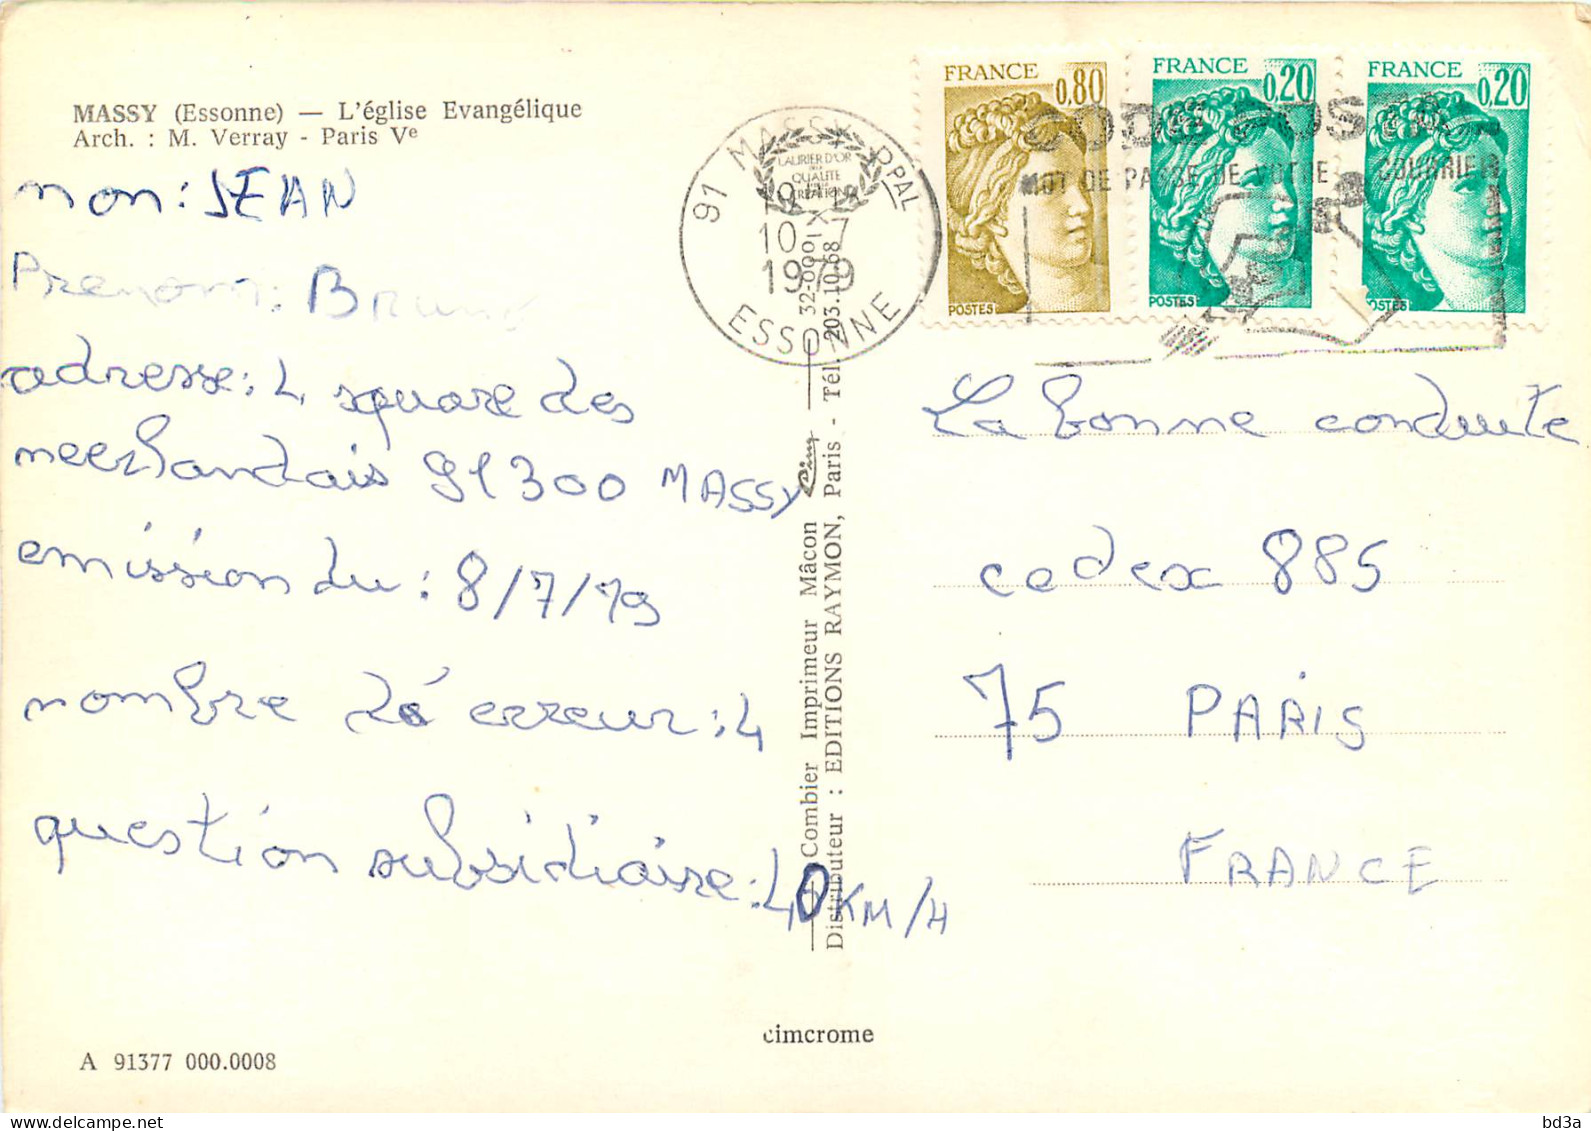 MASSY (Essonne) — L'église Evangélique
Arch. : M. Verray - Paris Ve
non : JEAN
Prenom : Bruno
adresse : 4 square des
91300 MASSY
emission du : 8/7/79
nombre dé erreur : 4
question subsidiaire : 40 KM/H
A 91377 000.0008
cimcrome
Combier Imprimeur Mâcon
Cim
Distributeur : EDITIONS RAYMON, Paris - Tél. 203.10.68
32-0001
LAURIER D'OR
QUALITE
CREATION
91 MASSY PPAL
10-7
1979
ESSONNE
FRANCE
0,80
POSTES
FRANCE
0,20
POSTES
FRANCE
0,20
POSTES
CODE POSTAL
MOT DE PASSE DE VOTRE COURRIER
La bonne conduite
cedex 885
75 PARIS
FRANCE
bd3a